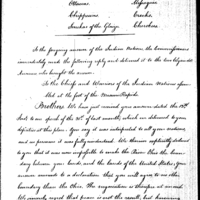 Ottawas Mohegans
Chippewas Creeks
Senekas of the Glaize Cherokees
To the forgoing answer of the Indian Nations, the Commissioners
immediately sent the following reply and delivered it to the two Wyandot
who brought the answer.
To the Chiefs and Warriors of the Indian Nations assem-
bled at the foot of the Miami Rapids
Brothers We have just received your answer dated the 13th
Inst to our speech of the 31st of last month, which we delivered to your
deputies at this place. You say it was interpreted to all your nations,
and we presume it was fully understood. We therein explicitly declared
to you that it was now impossible to make the River Ohio the boun-
dary between your lands and the lands of the United States. Your
answer amounts to a declaration that you will agree to no other
boundary than the Ohio. The negotiation is therefore at an end.
We sincerely regret that peace is not the result, but knowing